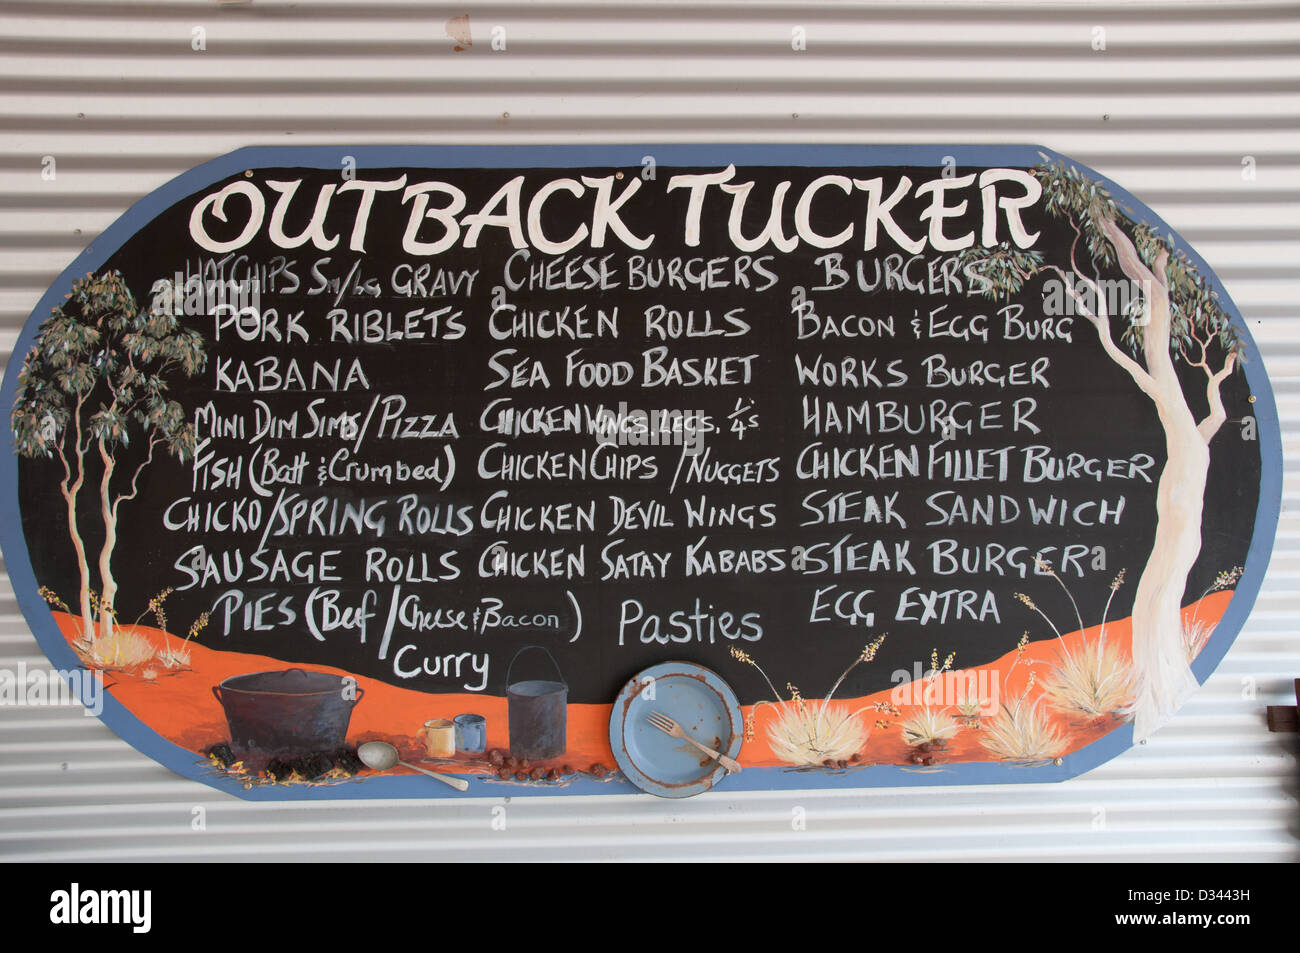 OUTBACK TUCKER
HOT CHIPS Sm/LG GRAVY
PORK RIBLETS
KABANA
MINI DIM SIMS/PIZZA
FISH (Batt & Crumbed)
CHICKO/SPRING ROLLS
SAUSAGE ROLLS
PIES (Beef/Cheese & Bacon)
Curry
CHEESE BURGERS
CHICKEN ROLLS
SEA FOOD BASKET
CHICKEN WINGS, LEGS, 1/4s
CHICKEN CHIPS /NUGGETS
CHICKEN DEVIL WINGS
CHICKEN SATAY KABABS
Pasties
BURGERS
BACON & EGG BURG
WORKS BURGER
HAMBURGER
CHICKEN FILLET BURGER
STEAK SANDWICH
STEAK BURGER
EGG EXTRA
a
alamy
alamy
Image ID: D3443H
www.alamy.com